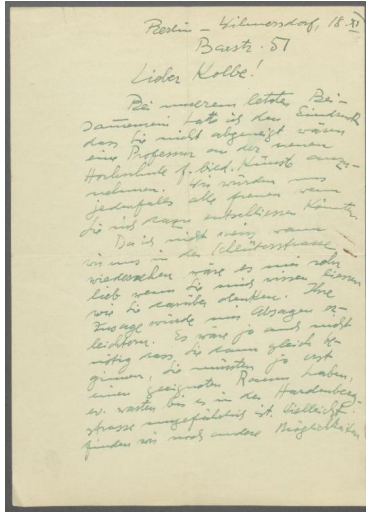 Berlin – Wilmersdorf, 18. XI
Baestr. 51
Lieber Kolbe!
Bei unserem letzten Bei-
sammensein hatte ich den Eindruck
dass Sie nicht abgeneigt waren
eine Professur an der neuen
Hochschule f. bild. Künste anzu-
nehmen. Wir würden uns
jedenfalls alle freuen wenn
Sie sich dazu entschliessen könnten.
Da ich nicht weiss wann
wir uns in der Schlüterstrasse
wiedersehen wäre es mir sehr
lieb wenn Sie mich wissen liessen
wie Sie darüber denken. Ihre
Zusage würde uns Absagen er-
leichtern. Es wäre ja auch nicht
nötig dass Sie dann gleich be-
ginnen, Sie müssten ja erst
einen geeigneten Raum haben,
ev. warten bis es in der Hardenberg-
strasse ungefährlich ist. Vielleicht
finden wir noch andere Möglichkeiten